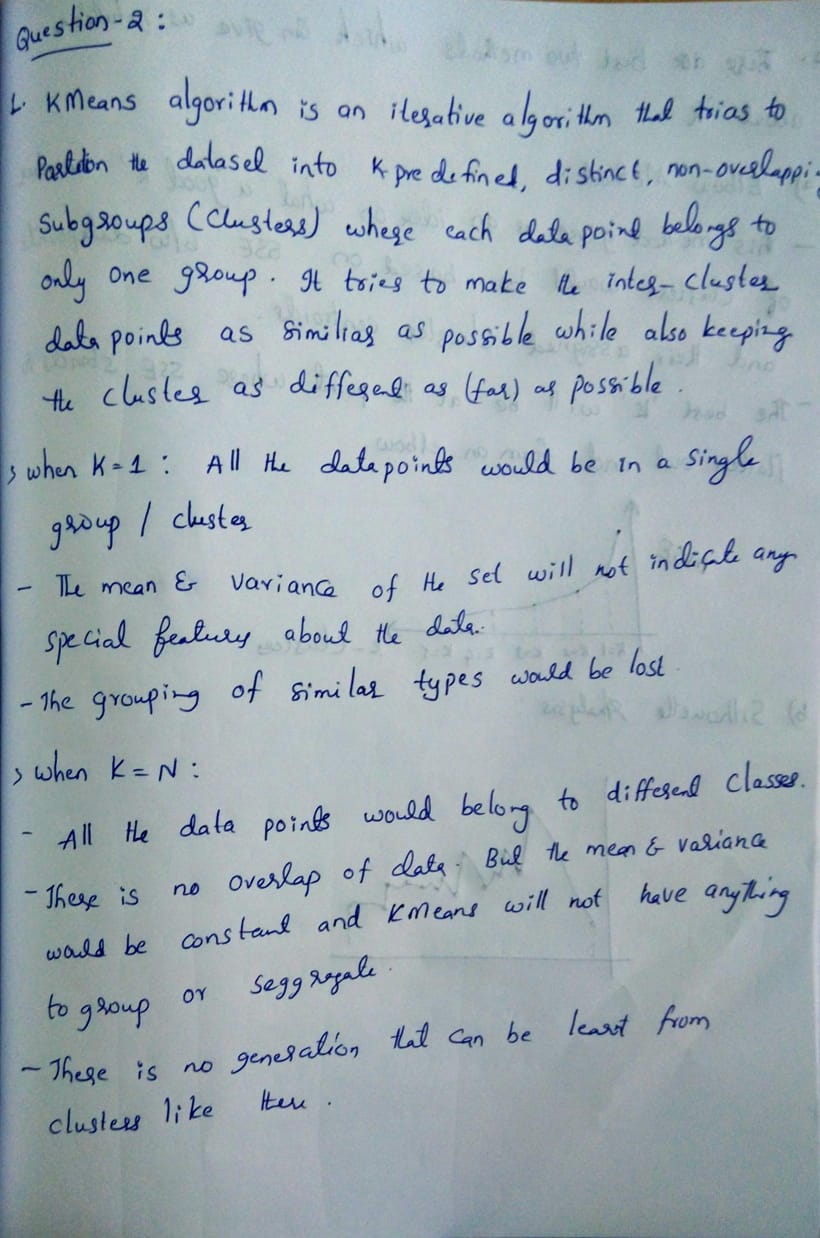 Question-2 :
1. KMeans algorithm is an iterative algorithm that trias to
Partition the dataset into K pre defined, distinct, non-overlapping
Subgroups (Clusters) where each data point belongs to
only one group. It tries to make the inter-cluster
data points as similiar as possible while also keeping
the cluster as different as (far) as possible.
> when K=1 : All the data points would be in a single
group / cluster
- The mean & variance of the set will not indicate any
special features about the data.
- The grouping of similar types would be lost
> when K = N :
- All the data points would belong to different classes.
- There is no overlap of data. But the mean & variance
would be constant and KMeans will not have anything
to group or seggregate.
- There is no generation that can be learnt from
clusters like these.